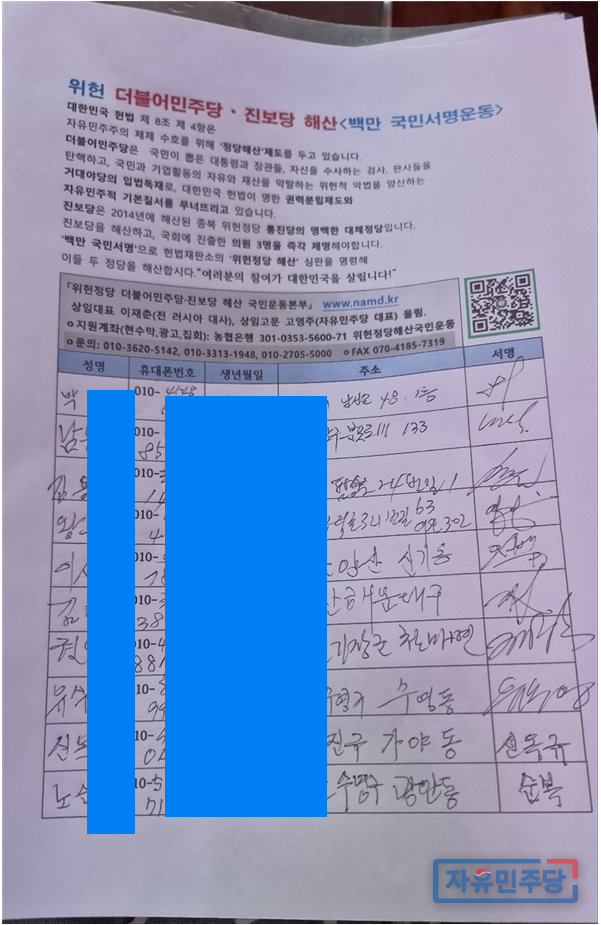 위헌 더불어민주당 · 진보당 해산<백만 국민서명운동>
대한민국 헌법 제 8조 제 4항은
자유민주주의 체제 수호를 위해 '정당해산'제도를 두고 있습니다.
더불어민주당은 국민이 뽑은 대통령과 장관들, 자신을 수사하는 검사, 판사들을
탄핵하고, 국민과 기업활동의 자유와 재산을 약탈하는 위헌적 악법을 양산하는
거대야당의 입법독재로, 대한민국 헌법이 명한 권력분립제도와
자유민주적 기본질서를 무너뜨리고 있습니다.
진보당은 2014년에 해산된 종북 위헌정당 통진당의 명백한 대체정당입니다.
진보당을 해산하고, 국회에 진출한 의원 3명을 즉각 제명해야합니다.
'백만 국민서명'으로 헌법재판소의 '위헌정당 해산' 심판을 명령해
이들 두 정당을 해산합시다."여러분의 참여가 대한민국을 살립니다!"
『위헌정당 더불어민주당·진보당 해산 국민운동본부』 www.namd.kr
상임대표 이재춘(전 러시아 대사), 상임고문 고영주(자유민주당 대표) 올림.
○지원계좌(현수막,광고,집회): 농협은행 301-0353-5600-71 위헌정당해산국민운동
○문의: 010-3620-5142, 010-3313-1948, 010-2705-5000 ○FAX 070-4185-7319
성명 휴대폰번호 생년월일 주소 서명
박 010- 48. 1층
010- 85 133
김 010-
010- 4 63 302
이 010- 신기동
김 010- 38 해운대구
010-4 881 기장군
유 010- 99 수영동
신 010- 진구 가야동 신옥규
노순 010-5 71 수영구 광안동 순복
자유민주당